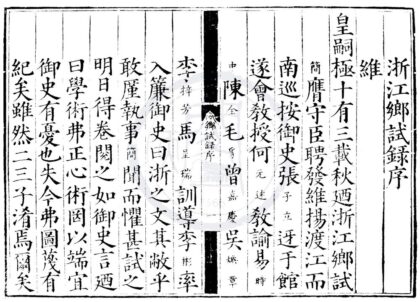 浙江鄉試錄序
維
皇嗣極十有三載秋迺浙江鄉試
簡膺守臣聘發維揚渡江而
南巡按御史張子在迓于館
遂會教授何元述教諭易時
中陳全毛孚曾嘉慶吳煥章
鄉試錄序
李待芳馬呈瑞訓導李彬率
入簾御史曰浙之文其敝乎
敢厪執事簡聞而懼甚試之
明日得卷閱之如御史言迺
曰學術弗正心術罔以端宜
御史有憂也失今弗圖蔑有
紀矣雖然二三子淆焉爾矣